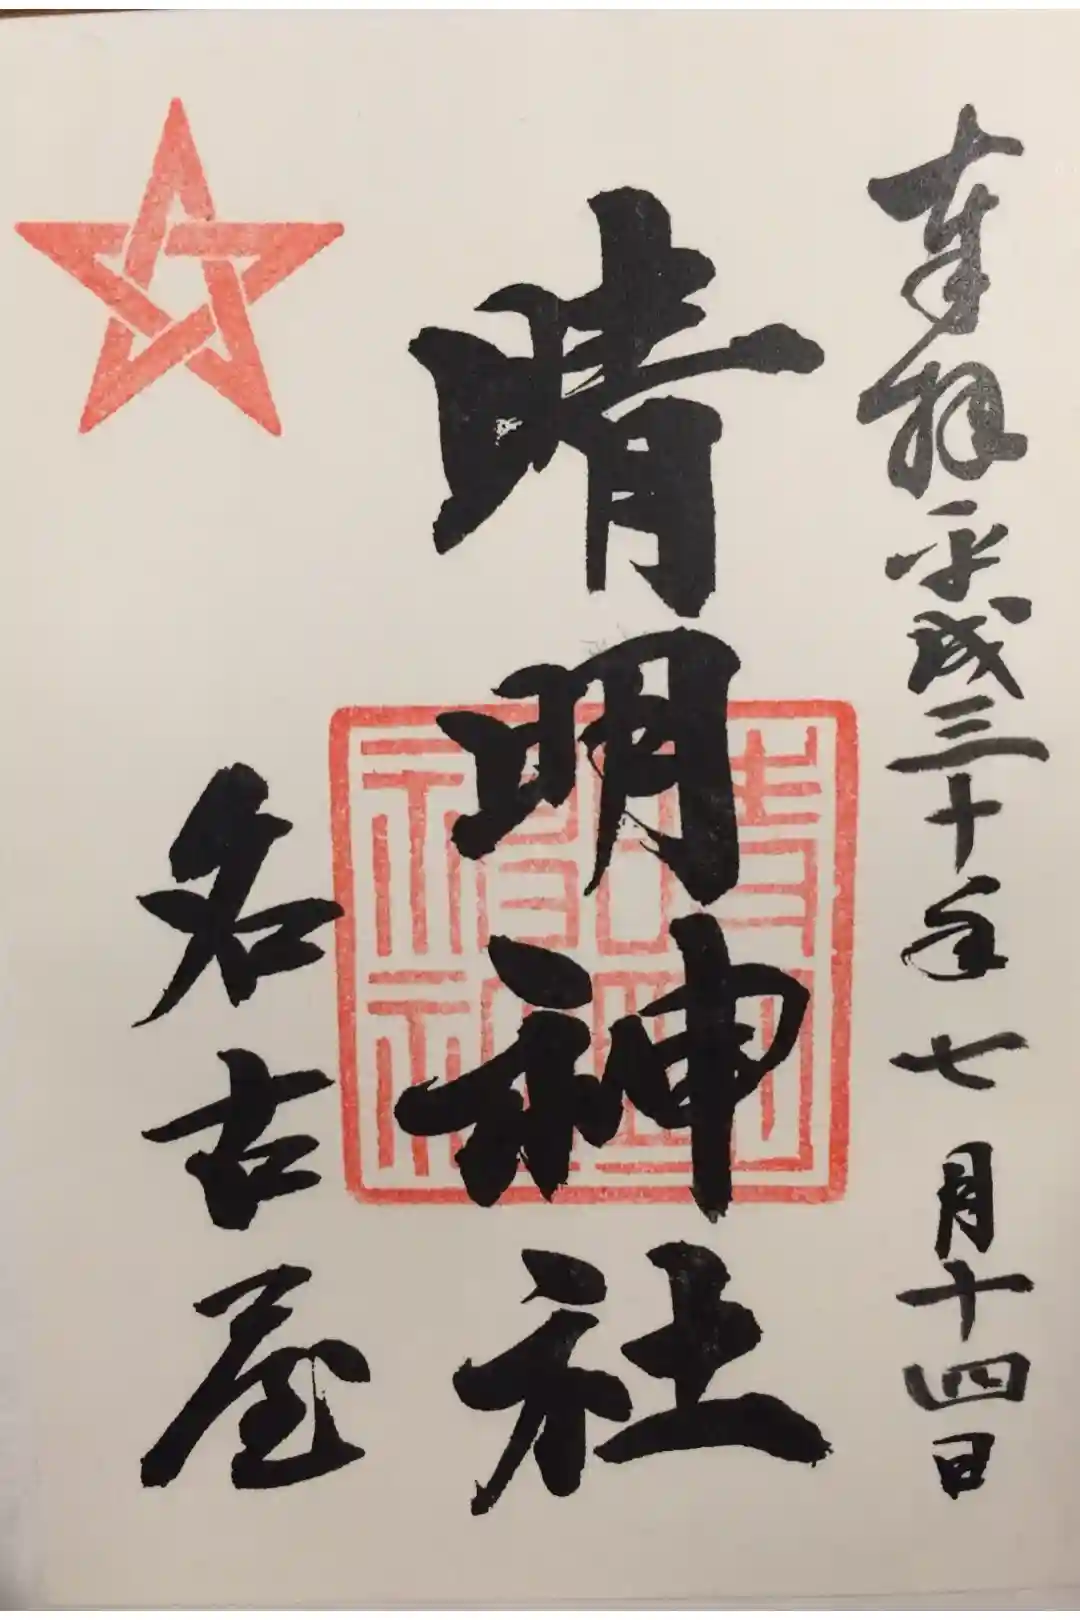 奉拝 平成三十年 七月十四日
晴明神社
名古屋
晴明神社